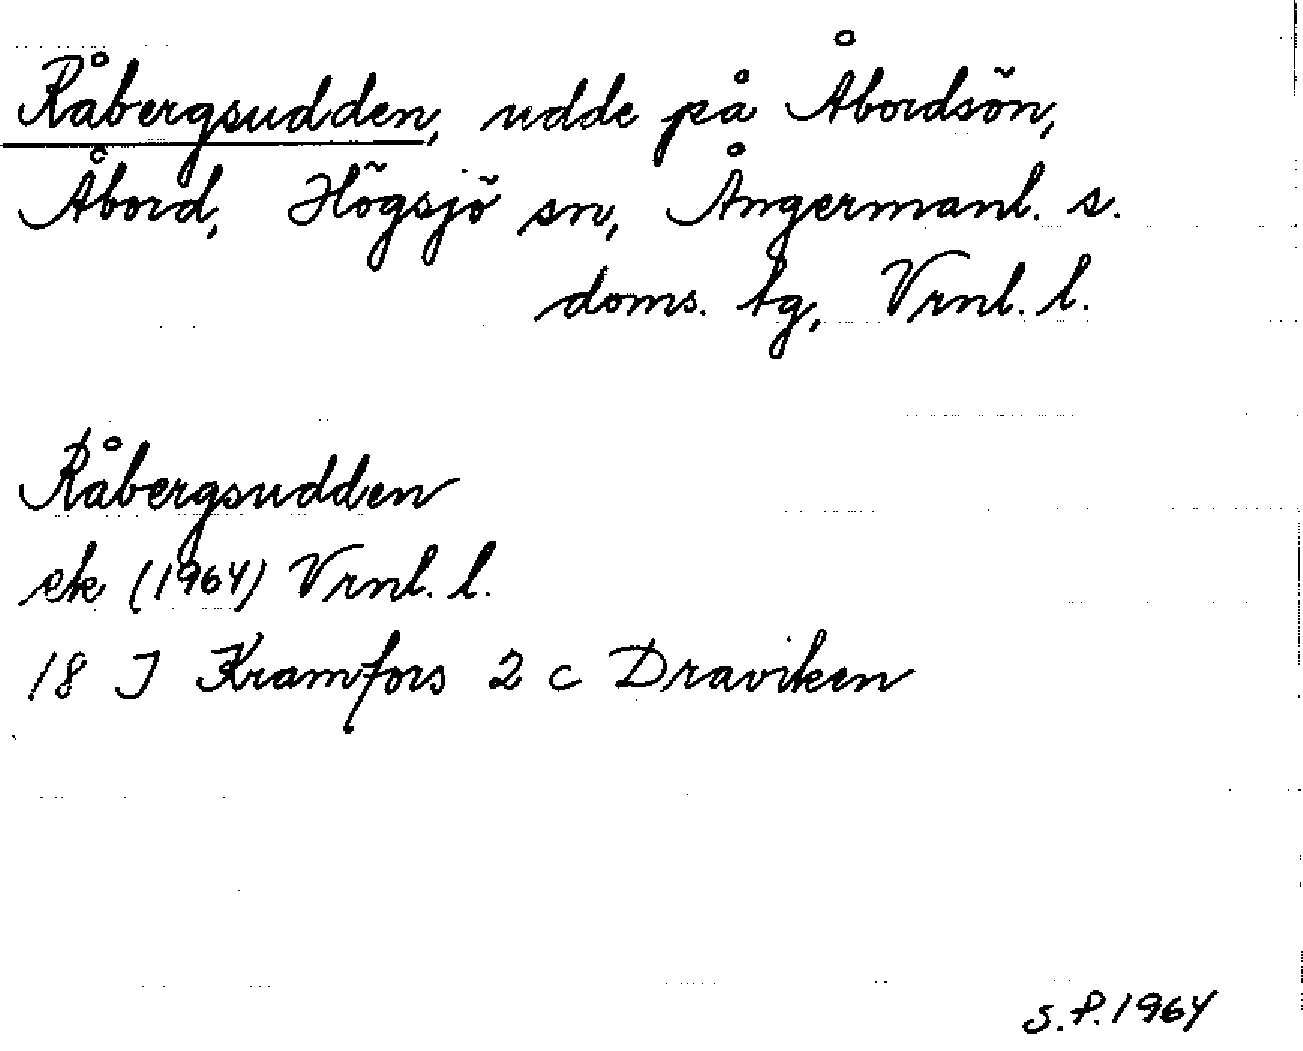 Råbergsudden, udde på Åbordsön,
Åbord, Högsjö sn, Ångermanl. s.
doms. tg, Vrnl. l.
Råbergsudden
ek (1964) Vrnl. l.
18 J Kramfors 2 c Draviken
S.P. 1964